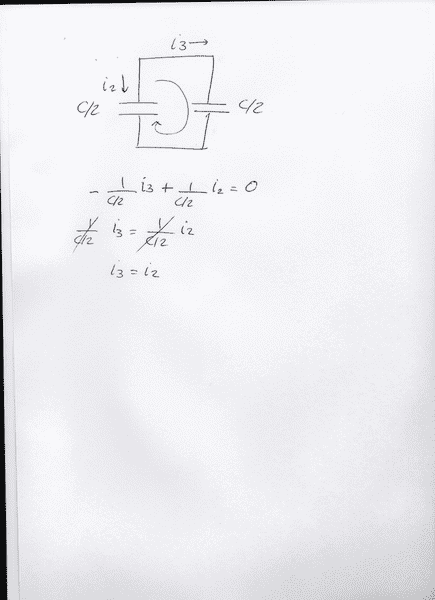 i3→
i2↓
C/2
C/2
- 1/(C/2) i3 + 1/(C/2) i2 = 0
1/(C/2) i3 = 1/(C/2) i2
i3 = i2